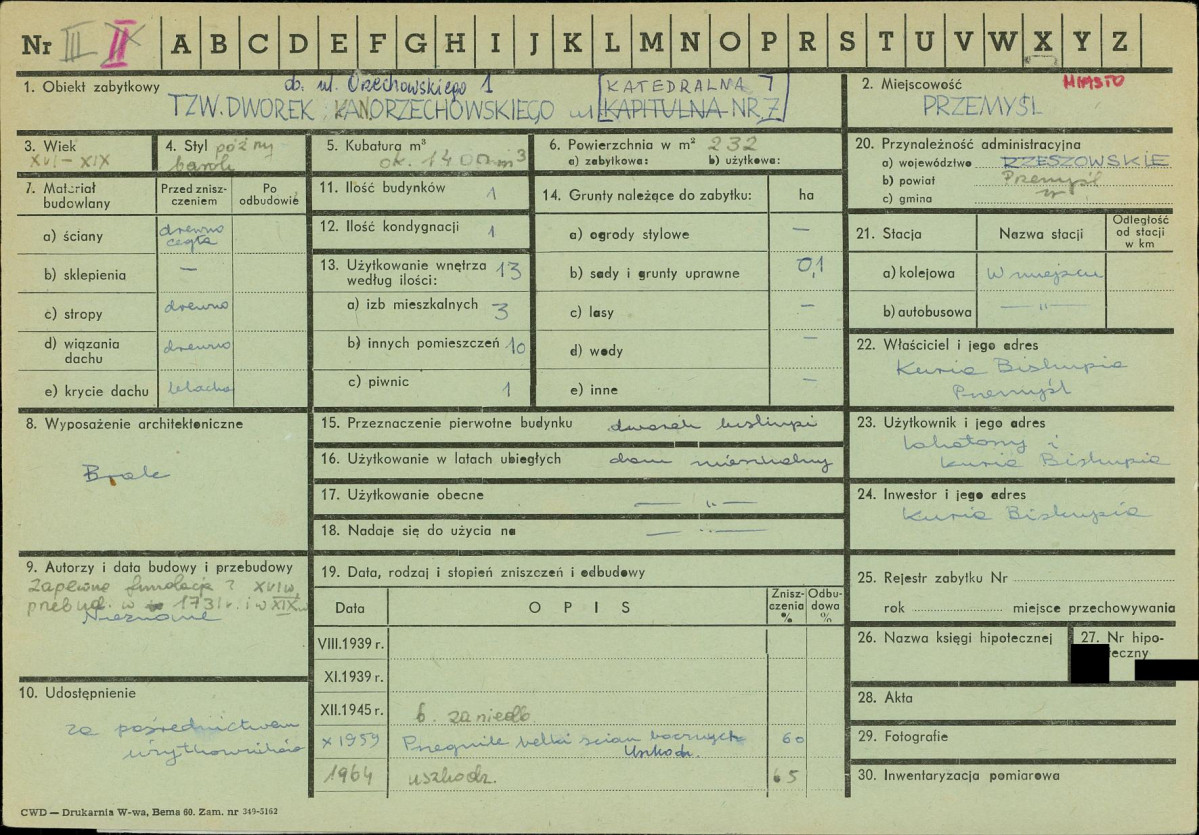 Nr II A B C D E F G H I J K L M N O P R S T U V W X Y Z
1. Obiekt zabytkowy
d. ul. Orzechowskiego 1
TZW. DWOREK KAN. ORZECHOWSKIEGO ul. KAPITULNA NR. 7
KATEDRALNA 7
2. Miejscowość
MIASTO
PRZEMYŚL
3. Wiek
XVI – XIX
4. Styl późny
barok
5. Kubatura m³
ok. 1400 m³
6. Powierzchnia w m² 232
a) zabytkowa: b) użytkowa:
7. Materiał budowlany
Przed zniszczeniem
Po odbudowie
a) ściany drewno cegła
b) sklepienia —
c) stropy drewno
d) wiązania dachu drewno
e) krycie dachu blacha
8. Wyposażenie architektoniczne
Brak
9. Autorzy i data budowy i przebudowy
Zapewne fundacja ? XVI w.
przebud. w 1731 r. i w XIX w.
Nieznane
10. Udostępnienie
za pośrednictwem
użytkowników
11. Ilość budynków 1
12. Ilość kondygnacji 1
13. Użytkowanie wnętrza według ilości: 13
a) izb mieszkalnych 3
b) innych pomieszczeń 10
c) piwnic 1
14. Grunty należące do zabytku: ha
a) ogrody stylowe —
b) sady i grunty uprawne 0,1
c) lasy —
d) wody —
e) inne —
15. Przeznaczenie pierwotne budynku dworek biskupi
16. Użytkowanie w latach ubiegłych dom mieszkalny
17. Użytkowanie obecne — „ —
18. Nadaje się do użycia na — „ —
19. Data, rodzaj i stopień zniszczeń i odbudowy
Data OPIS Zniszczenia % Odbudowa %
VIII.1939 r.
XI.1939 r.
XII.1945 r. b. zaniedb.
X 1959 Przegniłe belki ścian bocznych 60
Uszkodz.
1964 uszkodz. 65
20. Przynależność administracyjna
a) województwo RZESZOWSKIE
b) powiat Przemyśl
c) gmina
21. Stacja Nazwa stacji Odległość od stacji w km
a) kolejowa W miejscu
b) autobusowa — „ —
22. Właściciel i jego adres
Kuria Biskupia
Przemyśl
23. Użytkownik i jego adres
Lokatorzy i
Kuria Biskupia
24. Inwestor i jego adres
Kuria Biskupia
25. Rejestr zabytku Nr
rok miejsce przechowywania
26. Nazwa księgi hipotecznej
27. Nr hipoteczny
28. Akta
29. Fotografie
30. Inwentaryzacja pomiarowa
CWD — Drukarnia W-wa, Bema 60. Zam. nr 349-5162